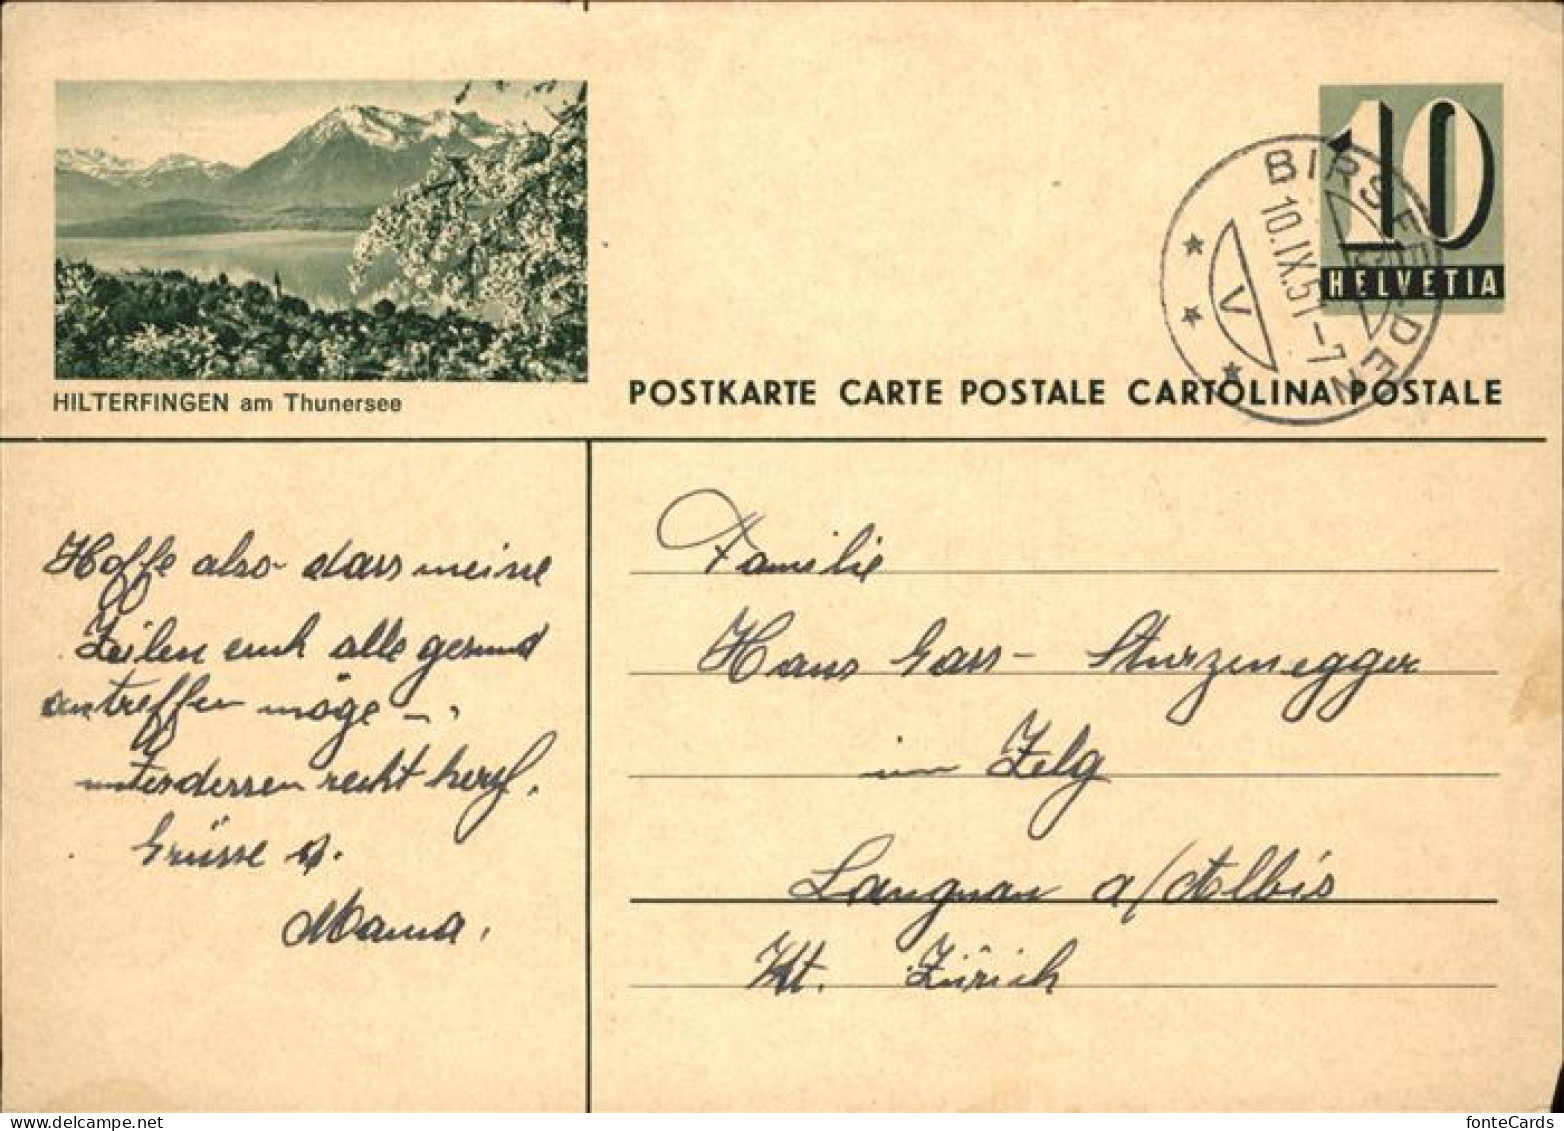 HILTERFINGEN am Thunersee
10
HELVETIA
BIRSFELDEN
10.IX.51-7
V
POSTKARTE CARTE POSTALE CARTOLINA POSTALE
Hoffe also dass meine
Zeilen euch alle gesund
antreffen möge -
unterdessen recht herzl.
Grüsse v.
Mama.
Familie
Hans Gass - Sturzenegger
im Zelg
Langnau a/Albis
Kt. Zürich
fonteCards